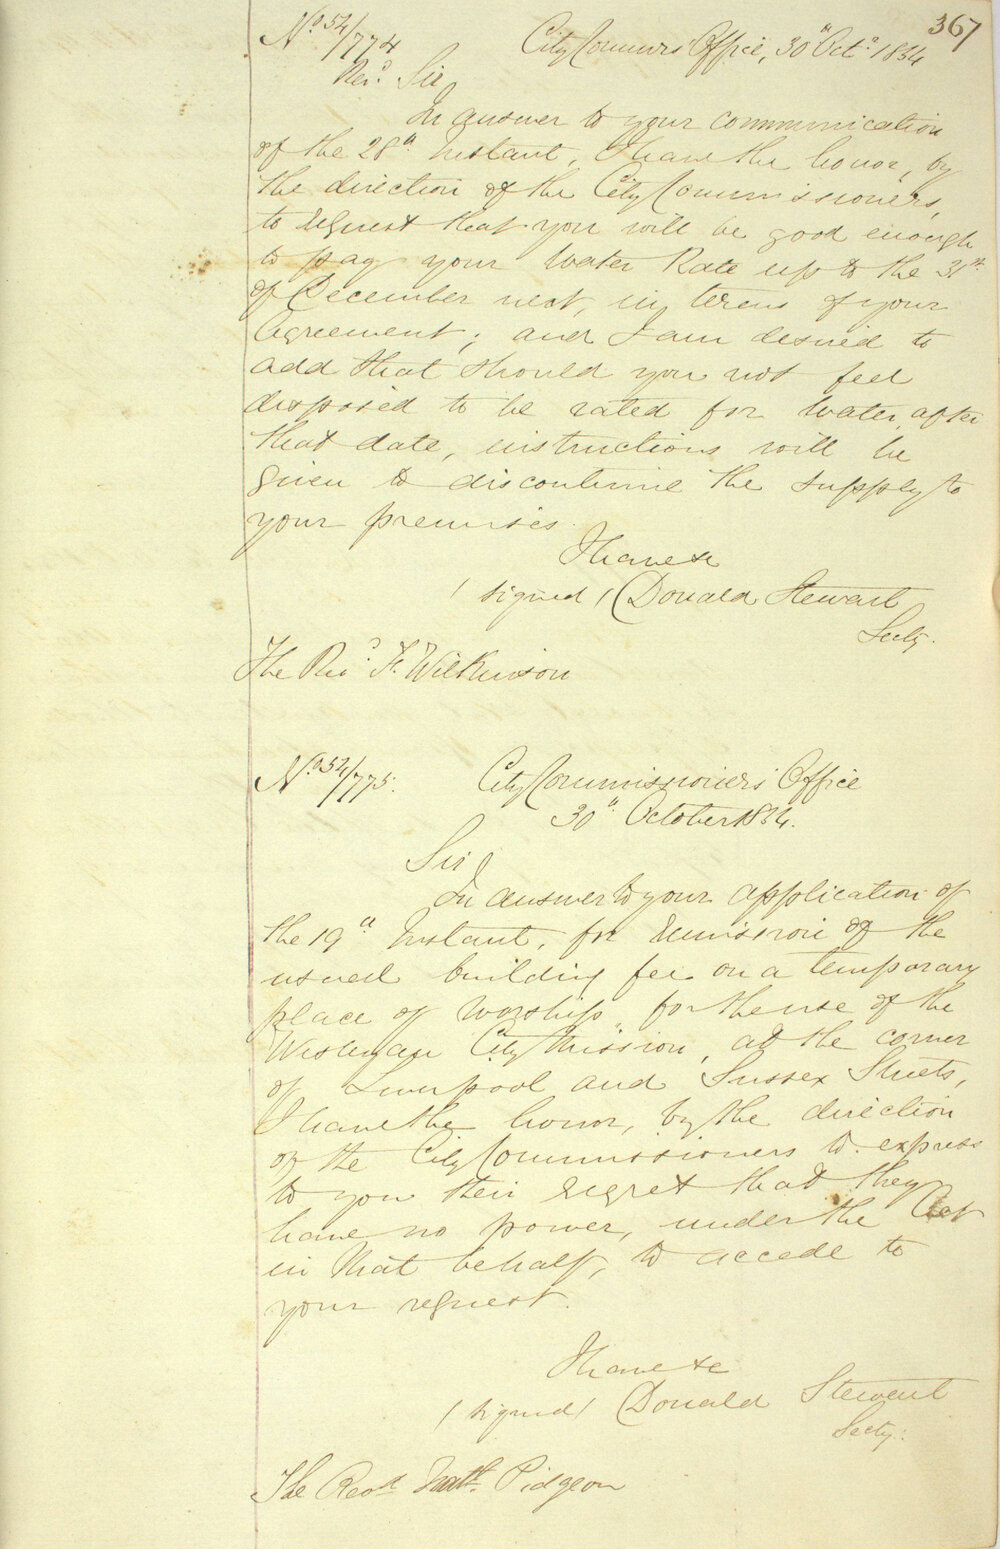 367
No. 54/774 City Commrs' Office, 30th Octr. 1854
Revd. Sir
In answer to your communication
of the 28th Instant, I have the honor, by
the direction of the City Commissioners,
to request that you will be good enough
to pay your Water Rate up to the 31st
of December next, in terms of your
Agreement; and I am desired to
add that should you not feel
disposed to be rated for Water after
that date, instructions will be
given to discontinue the supply to
your premises.
I have &c
(signed) Donald Stewart
Secty.
The Revd. F. Wilkinson
No. 54/775. City Commissioners' Office
30th October 1854.
Sir
In answer to your application of
the 19th Instant, for remission of the
usual building fee on a temporary
place of worship for the use of the
Wesleyan City Mission, at the corner
of Liverpool and Sussex Streets,
I have the honor, by the direction
of the City Commissioners to express
to you their regret that they
have no power, under the Act
in that behalf, to accede to
your request.
I have &c
(signed) Donald Stewart
Secty.
The Revd. Nathl. Pidgeon